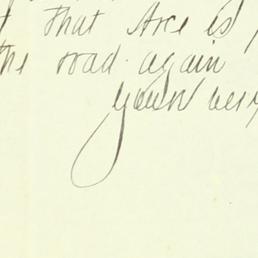 that Arc is
the road again
yours very